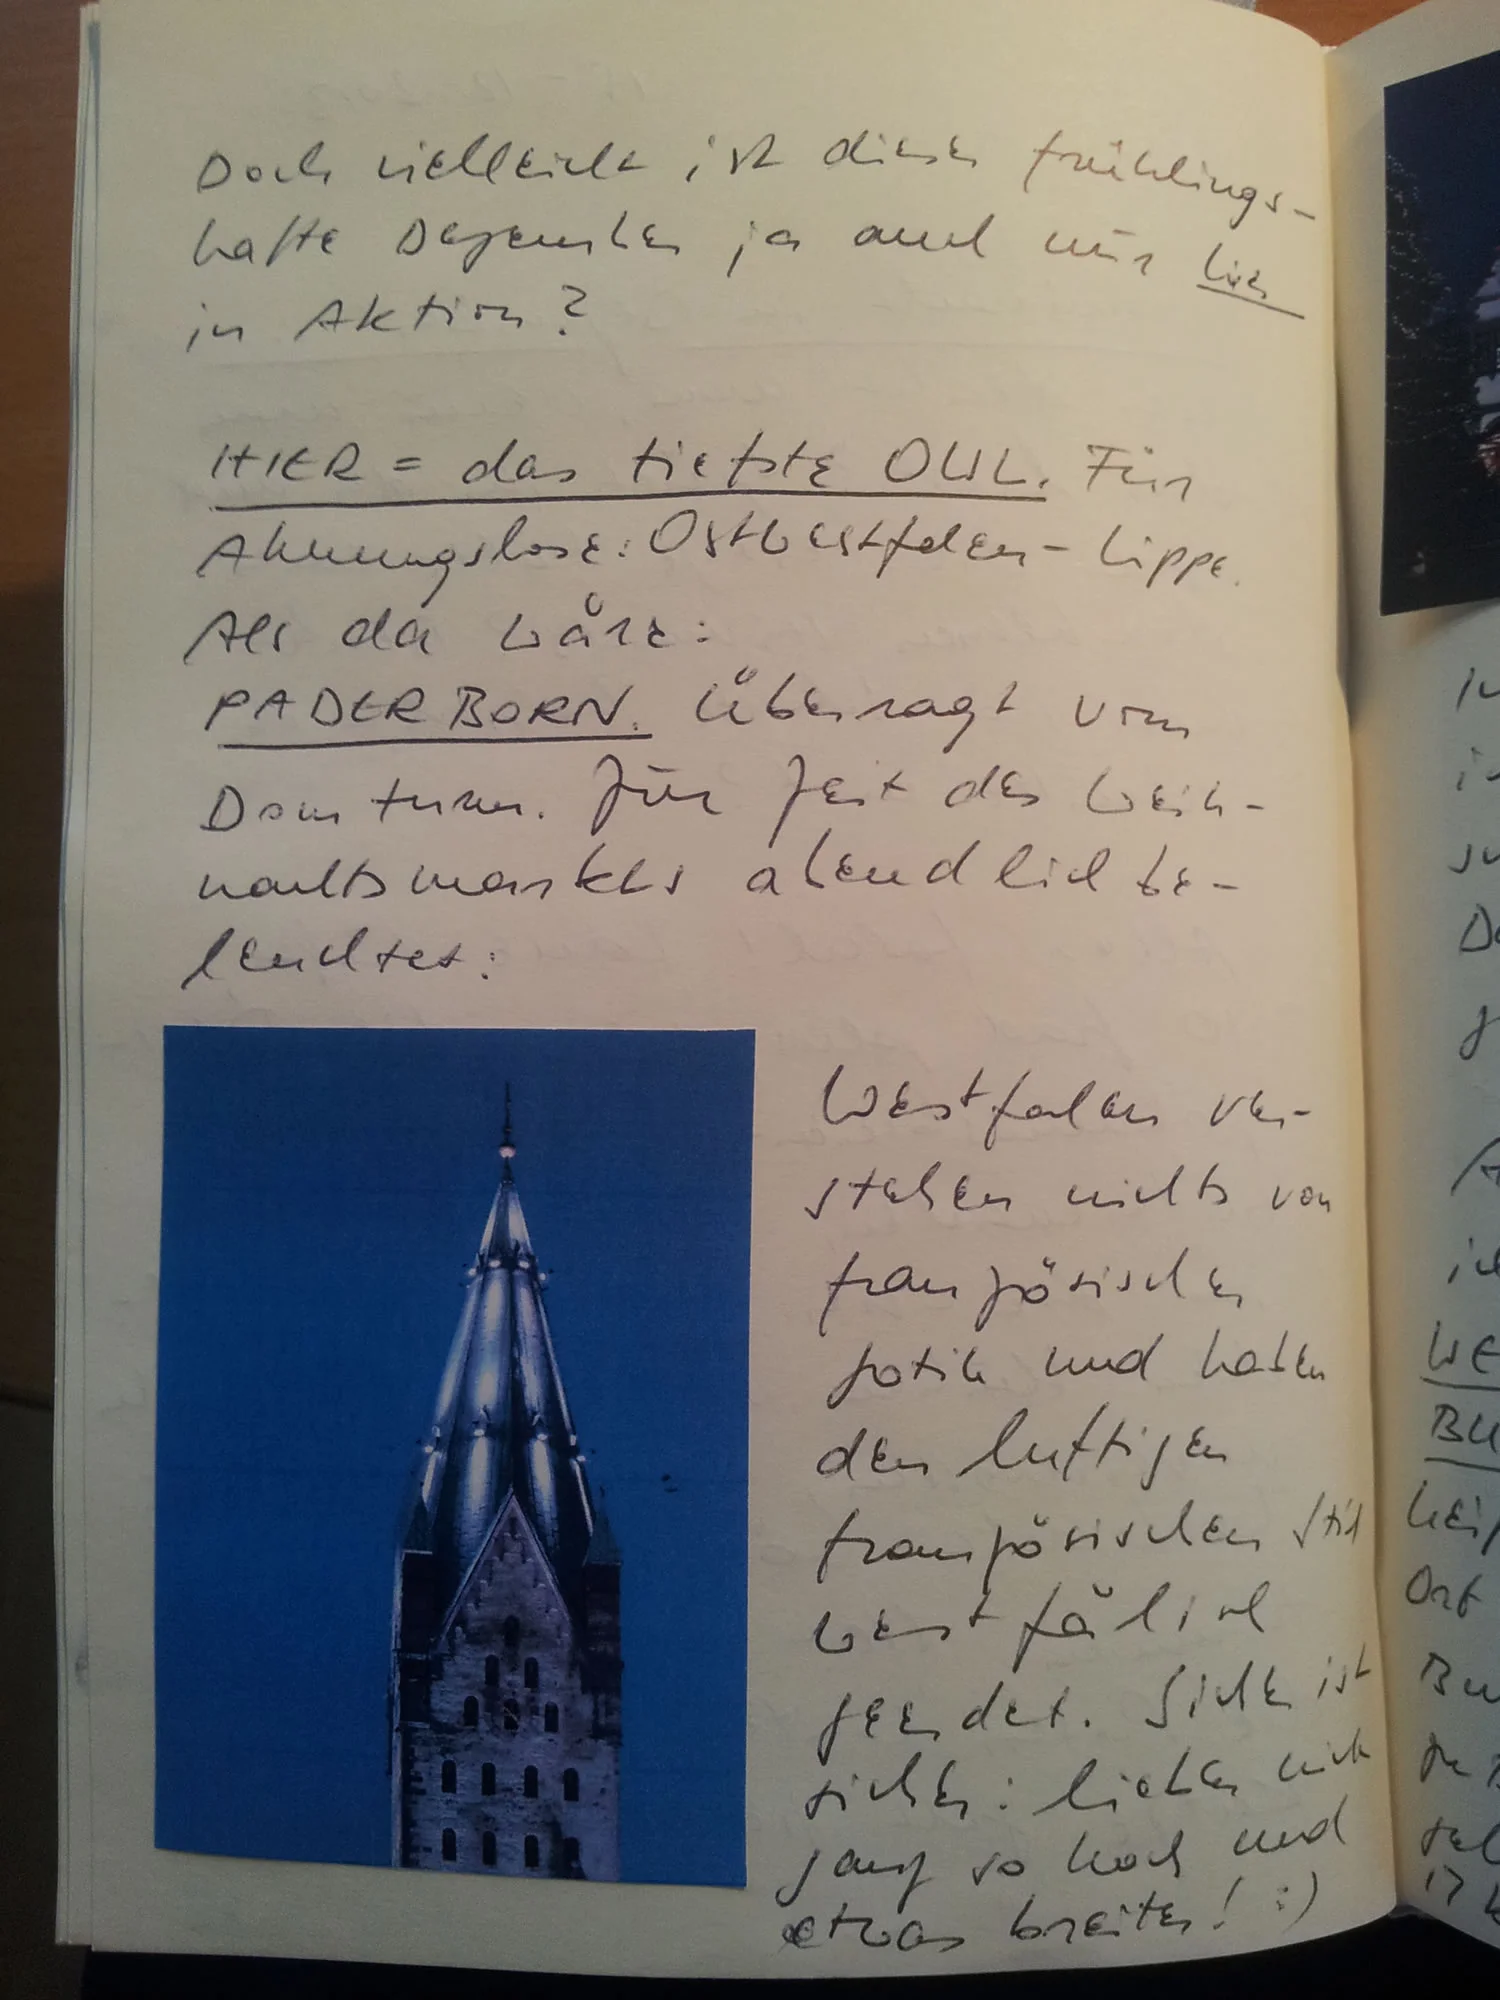 Doch vielleicht ist dieser frühlings-
hafte Dezember ja auch nur hier
in Aktion?
HIER = das tiefste OWL. Für
Ahnungslose: Ostwestfalen-Lippe.
Als da wäre:
PADERBORN. Überragt vom
Domturm. Zur Zeit des Weih-
nachtsmarktes abendlich be-
leuchtet:
Westfalen ver-
stehen nichts von
französischer
Gotik und haben
den luftigen
französischen Stil
westfälisch
geerdet. Sicher ist
sicher: lieber nicht
ganz so hoch und
etwas breiter! :)
in
Do
A
WE
BU
Ort
Bu